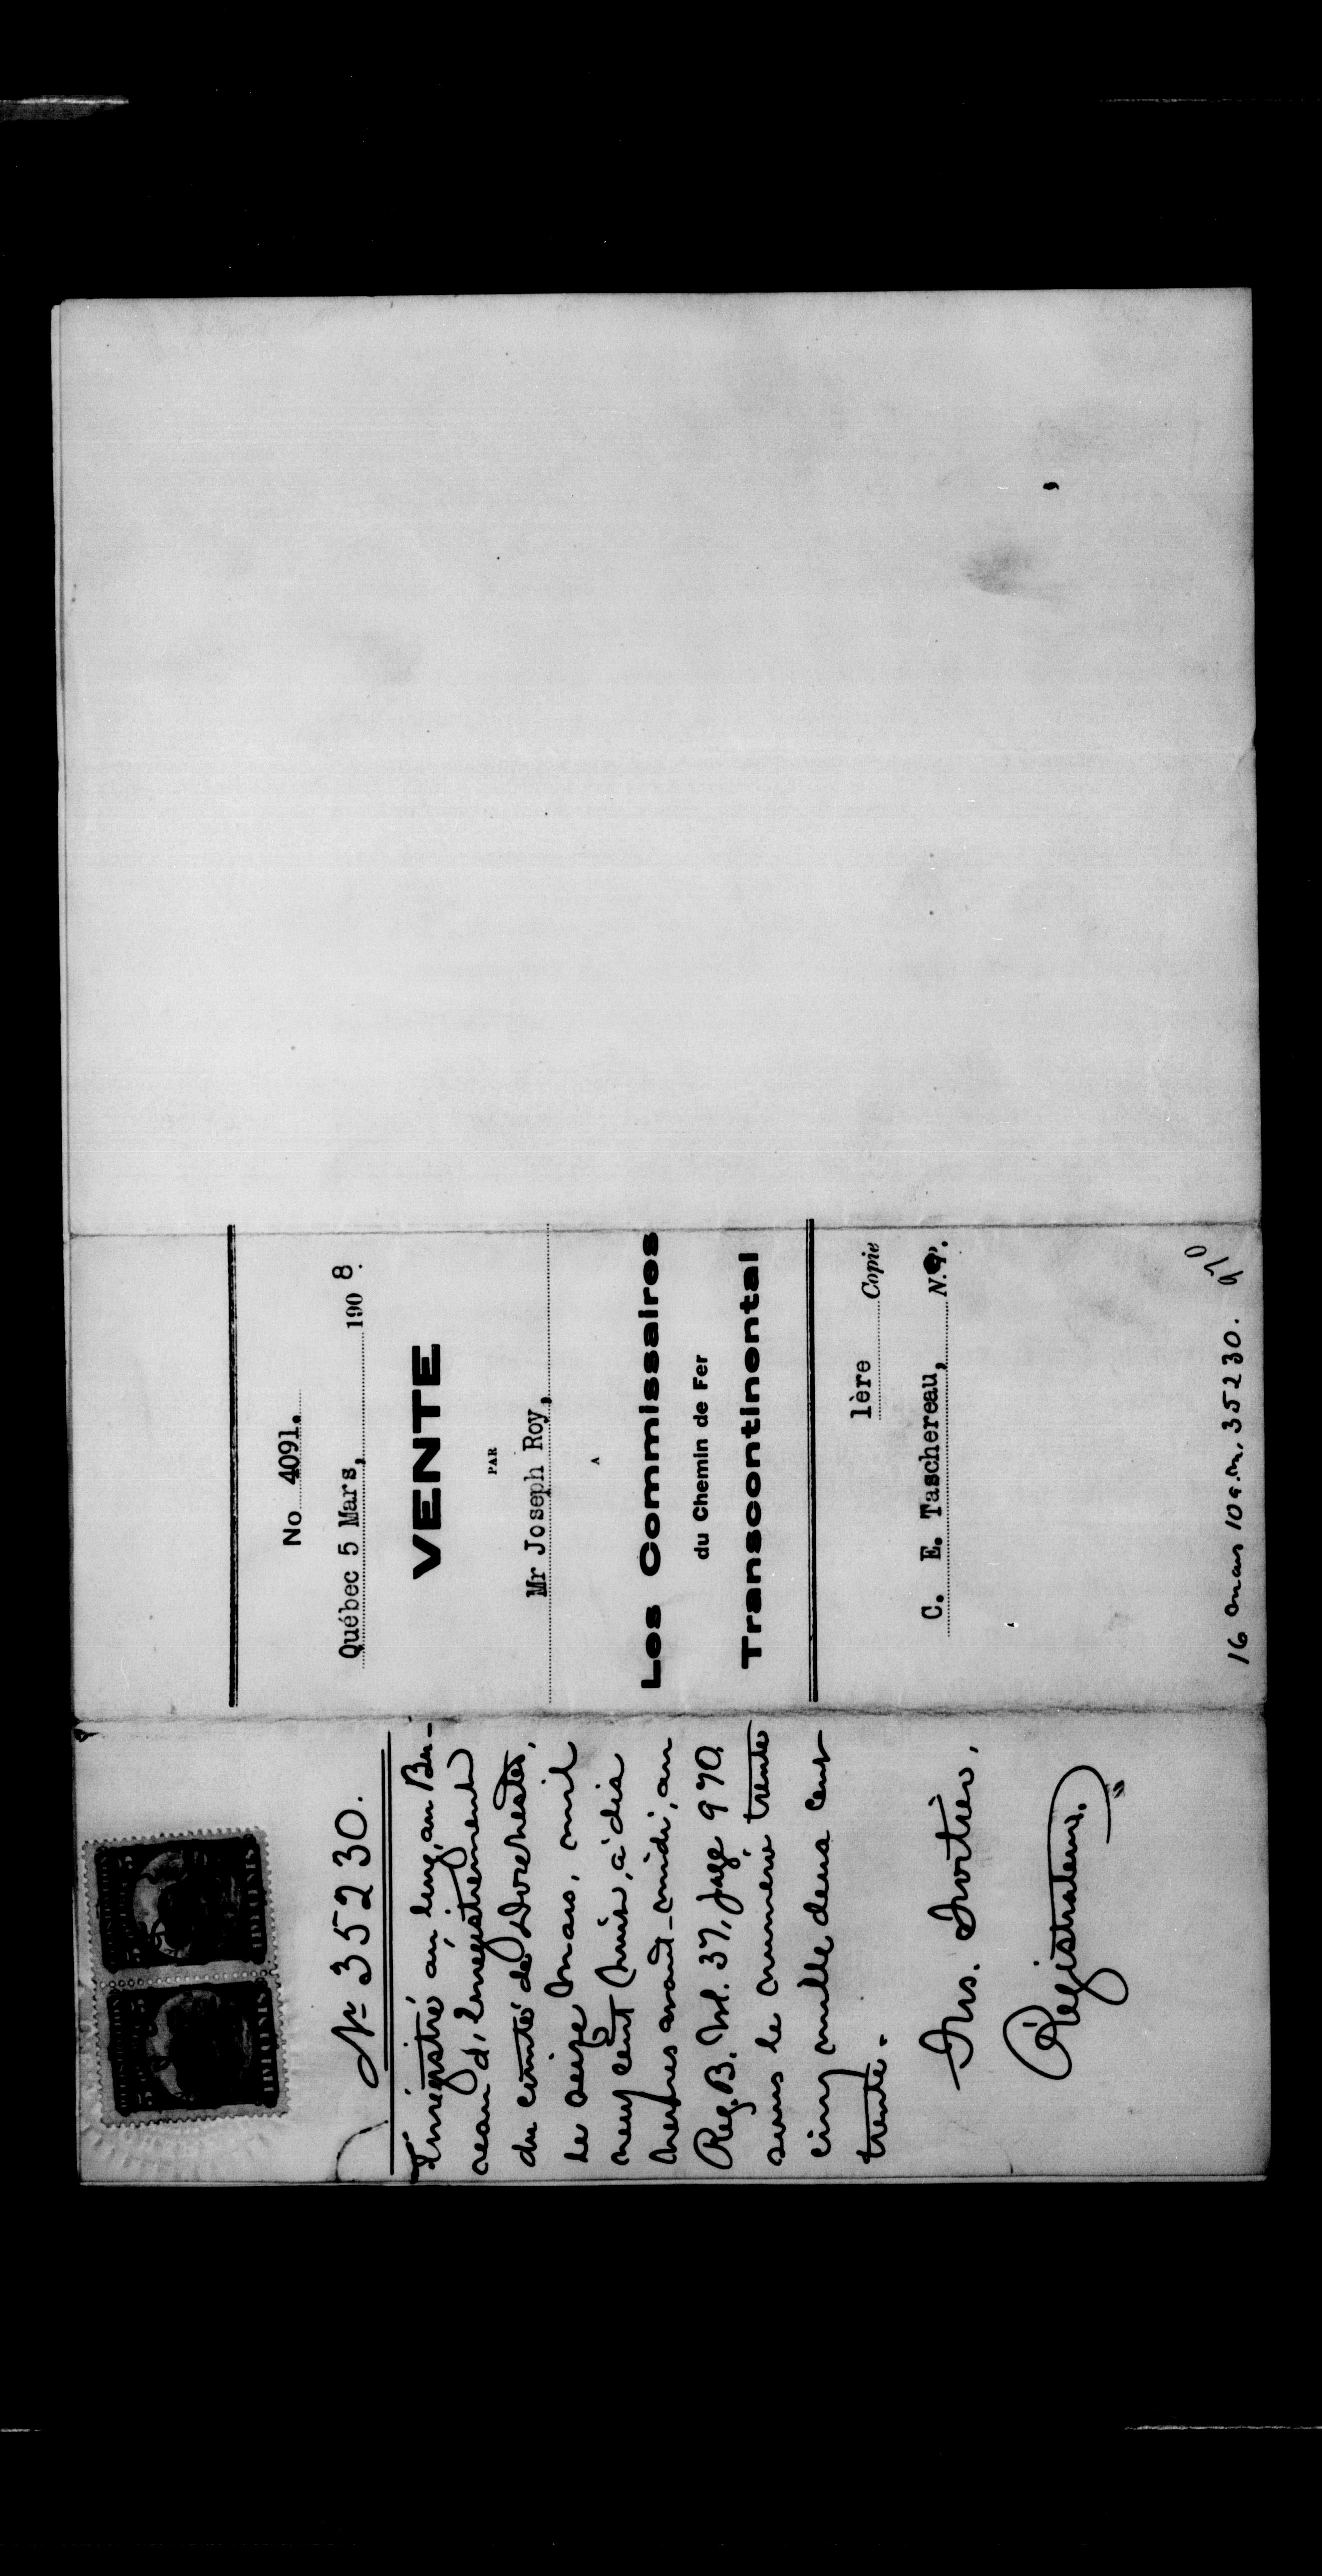 No 4091.
Québec 5 Mars, 1908.
VENTE
PAR
Mr Joseph Roy,
A
Les Commissaires
du Chemin de Fer
Transcontinental
1ère Copie
C. E. Taschereau, N.P.
16 mars 10 a.m. 35230.
970
No 35230.
Enregistré au long, au Bu-
reau d'Enregistrement
du comté de Dorchester,
le seize mars, mil
neuf cent huit, à dix
heures avant-midi, au
Reg. B. Vol. 37, page 970
sous le numéro trente
cinq mille deux cent
trente.
Régistrateur.